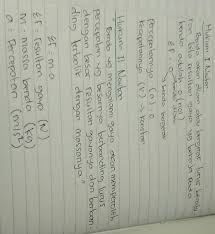 Hukum I Newton
Benda diam akan
bila resultan gaya yg bekerja pada
benda adalah 0 (nol)
ΣF
benda bergerak
Percepatannya (a) = 0
Kecepatannya (v) → konstan
Hukum II Newton
Benda yg mengalami gaya akan memperoleh
percepatan yg besarnya berbanding lurus
dengan besar resultan gayanya dan berban-
ding terbalik dengan massanya"
Σf = m . a
Σf = resultan gaya (N)
m = massa benda (kg)
a = Percepatan (m/s²)